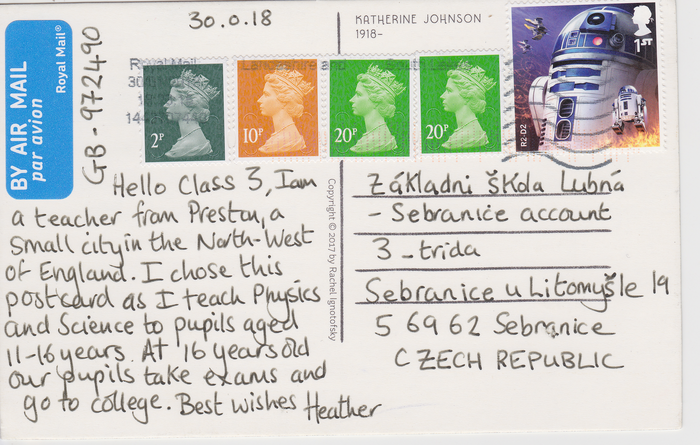 30.0.18
KATHERINE JOHNSON
1918-
BY AIR MAIL
par avion
Royal Mail®
GB-972490
Royal Mail
Lancashire and
South
2P
10P
20P
20P
1ST
R2-D2
Hello Class 3, I am
a teacher from Preston, a
small city in the North-West
of England. I chose this
postcard as I teach Physics
and Science to pupils aged
11-16 years. At 16 years old
our pupils take exams and
go to college. Best wishes Heather
Copyright © 2017 by Rachel Ignotofsky
Základni škola Lubná
- Sebranice account
3 - trida
Sebranice u Litomyšle 19
5 69 62 Sebranice
CZECH REPUBLIC